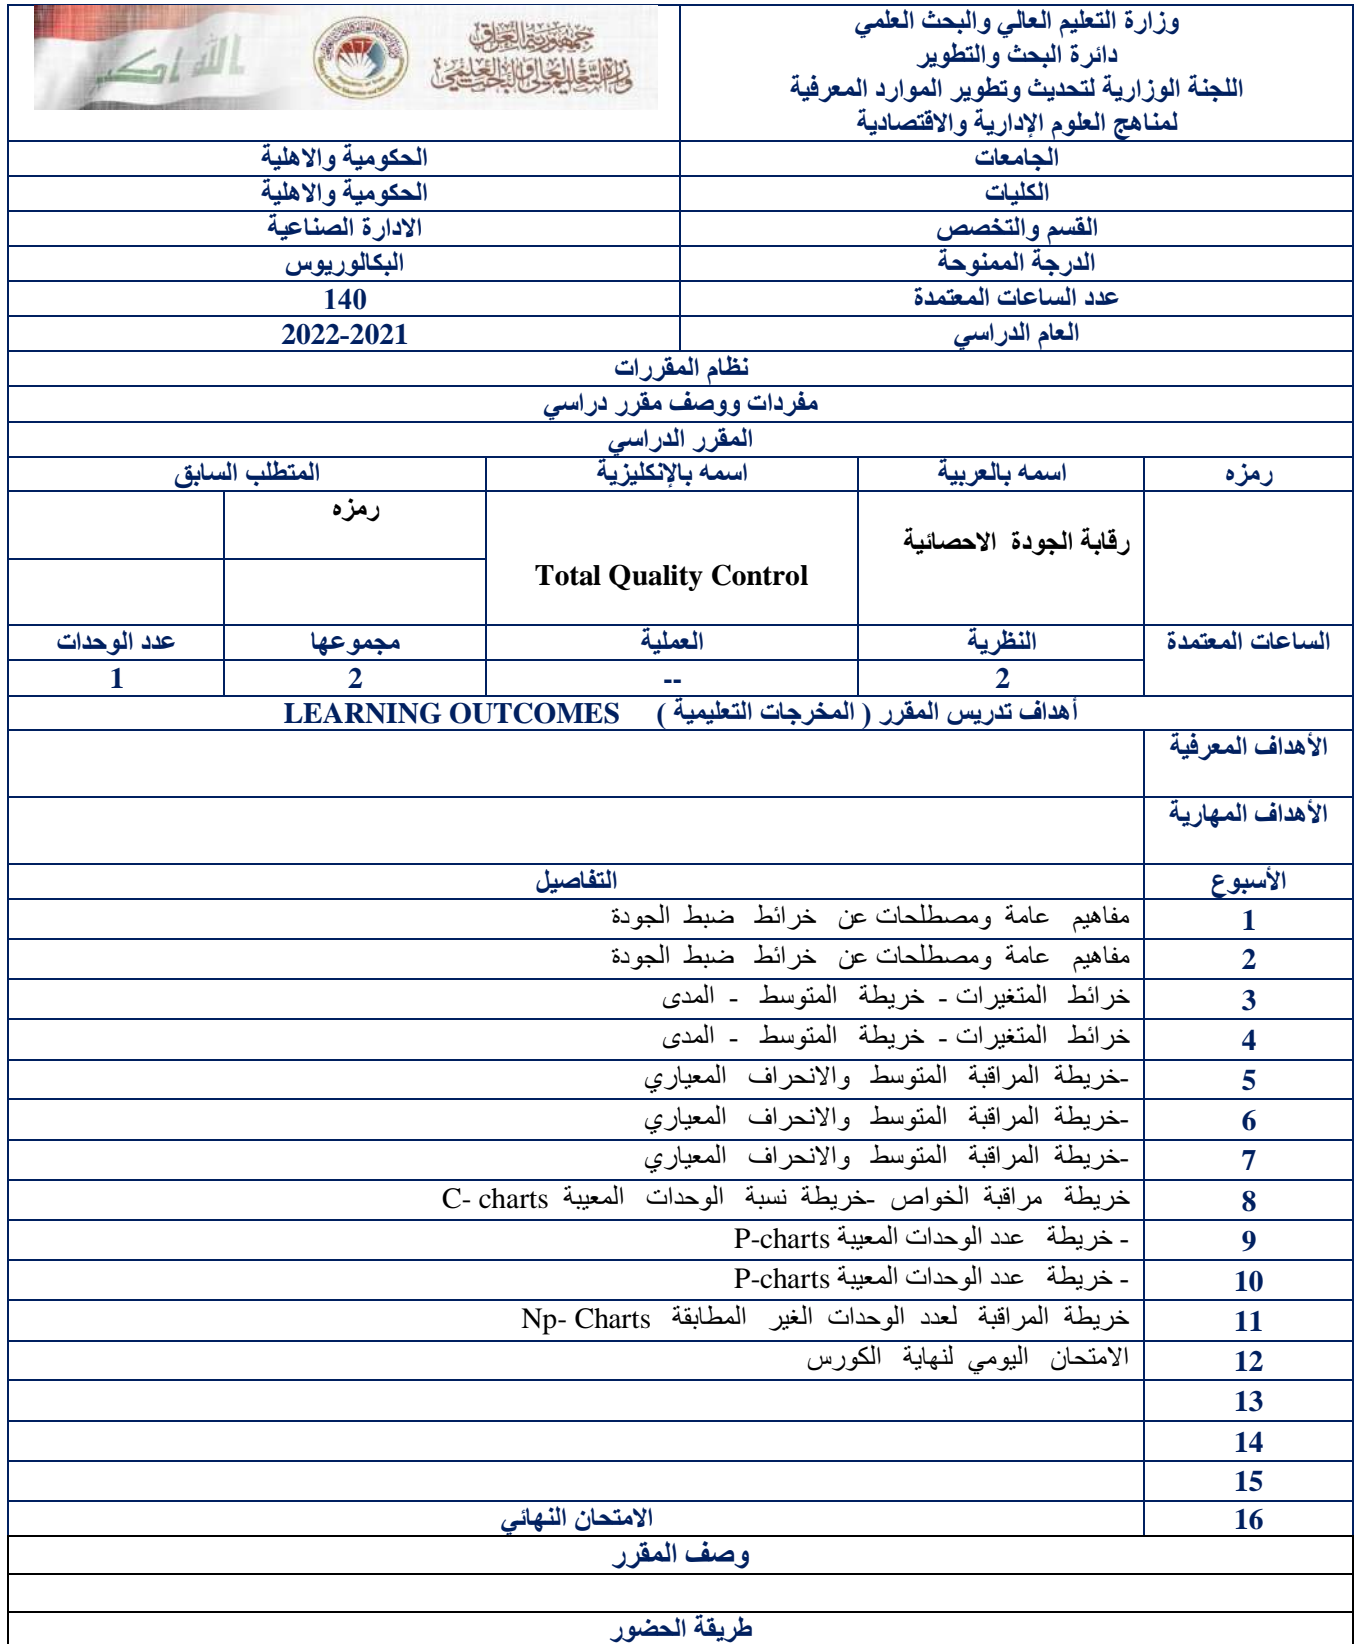 وزارة التعليم العالي والبحث العلمي
دائرة البحث والتطوير
اللجنة الوزارية لتحديث وتطوير الموارد المعرفية
لمناهج العلوم الإدارية والاقتصادية
جمهورية العراق
وزارة التعليم العالي والبحث العلمي
الله اكبر
الجامعات الحكومية والاهلية
الكليات الحكومية والاهلية
القسم والتخصص الادارة الصناعية
الدرجة الممنوحة البكالوريوس
عدد الساعات المعتمدة 140
العام الدراسي 2022-2021
نظام المقررات
مفردات ووصف مقرر دراسي
المقرر الدراسي
رمزه اسمه بالعربية اسمه بالإنكليزية المتطلب السابق
رمزه
رقابة الجودة الاحصائية
Total Quality Control
الساعات المعتمدة النظرية العملية مجموعها عدد الوحدات
2 -- 2 1
أهداف تدريس المقرر ( المخرجات التعليمية ) LEARNING OUTCOMES
الأهداف المعرفية
الأهداف المهارية
الأسبوع التفاصيل
1 مفاهيم عامة ومصطلحات عن خرائط ضبط الجودة
2 مفاهيم عامة ومصطلحات عن خرائط ضبط الجودة
3 خرائط المتغيرات - خريطة المتوسط - المدى
4 خرائط المتغيرات - خريطة المتوسط - المدى
5 -خريطة المراقبة المتوسط والانحراف المعياري
6 -خريطة المراقبة المتوسط والانحراف المعياري
7 -خريطة المراقبة المتوسط والانحراف المعياري
8 خريطة مراقبة الخواص -خريطة نسبة الوحدات المعيبة C- charts
9 - خريطة عدد الوحدات المعيبة P-charts
10 - خريطة عدد الوحدات المعيبة P-charts
11 خريطة المراقبة لعدد الوحدات الغير المطابقة Np- Charts
12 الامتحان اليومي لنهاية الكورس
13
14
15
16 الامتحان النهائي
وصف المقرر
طريقة الحضور